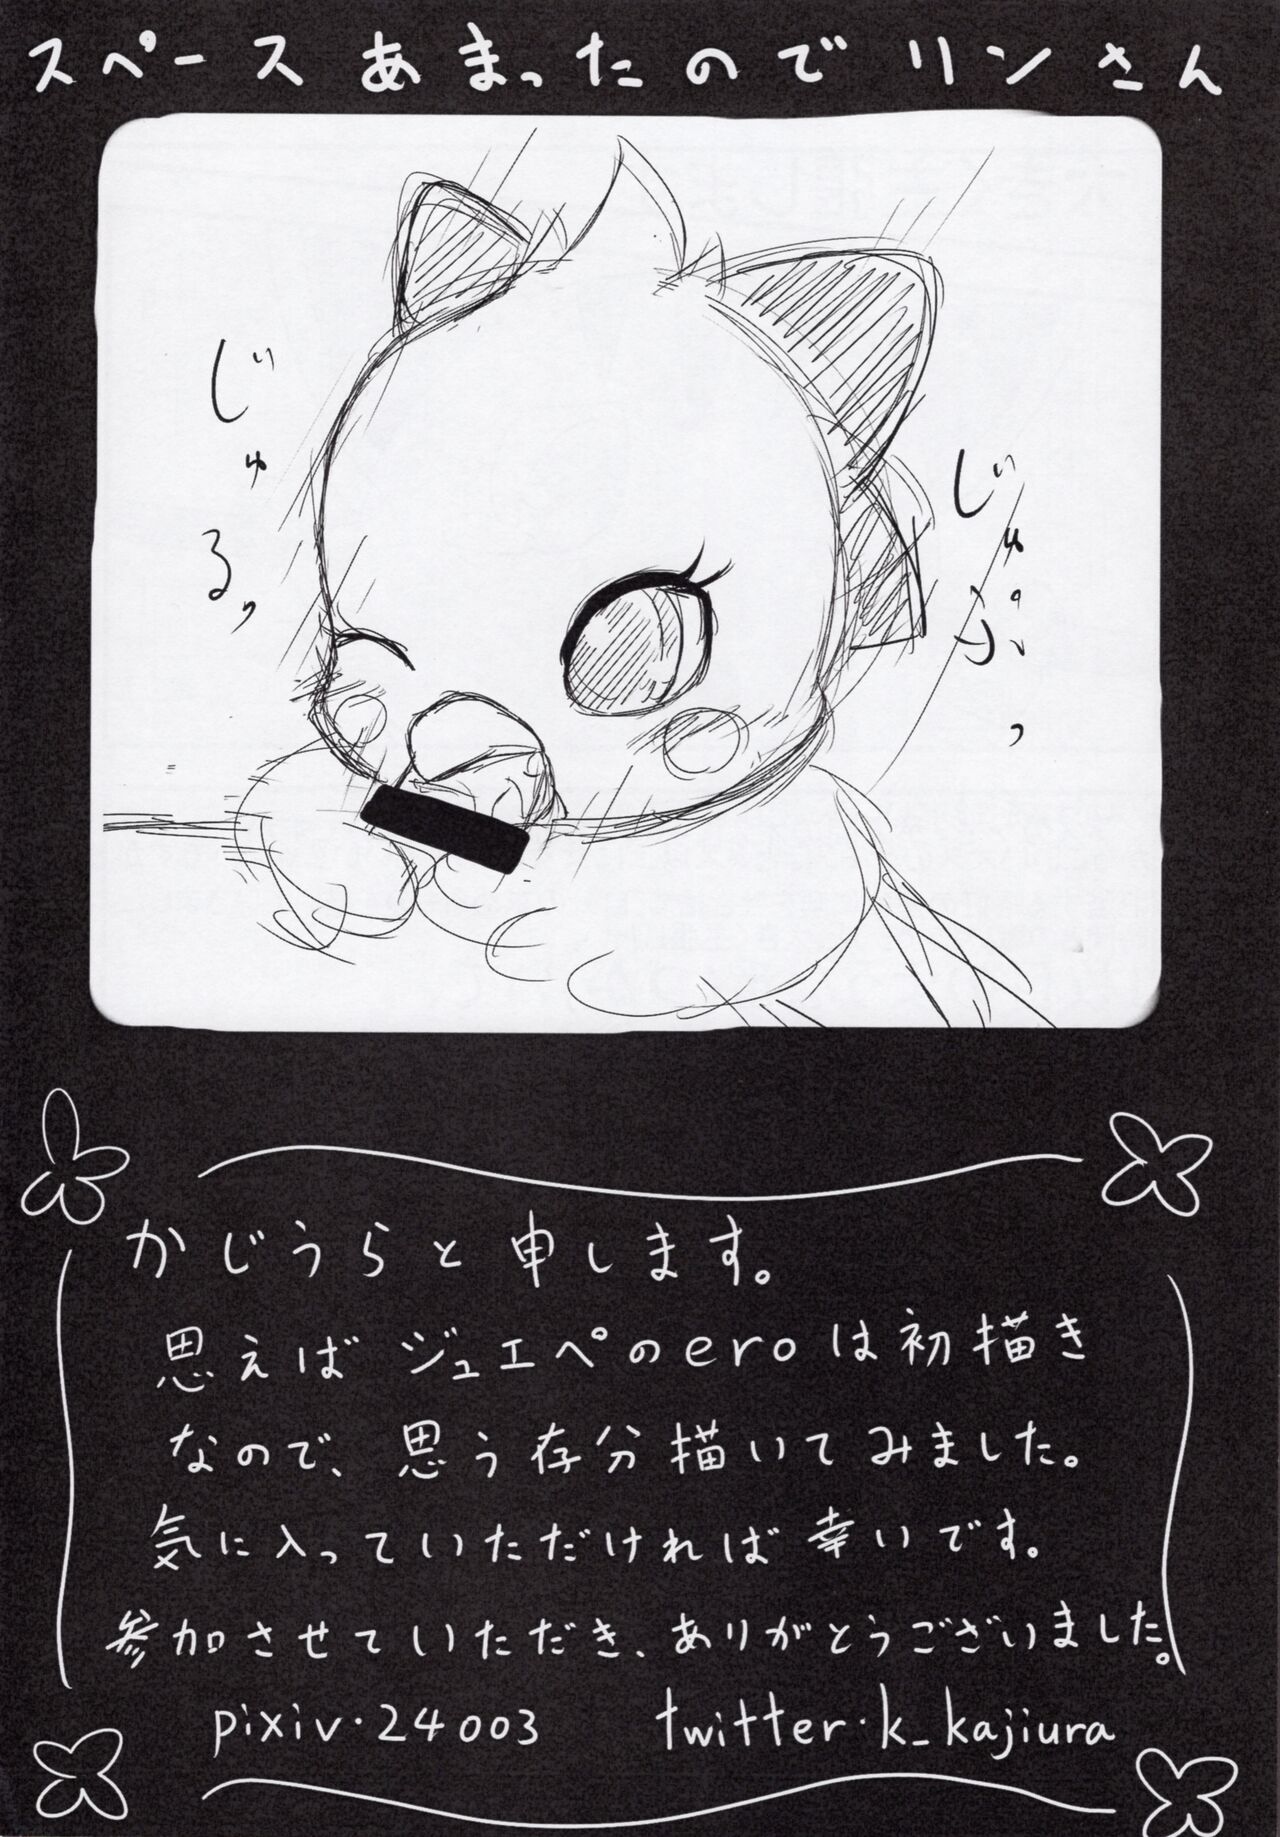 スペースあまったのでリンさん
じゅぷっ
じゅるっ
かじうらと申します。
思えばジュエペのeroは初描き
なので、思う存分描いてみました。
気に入っていただければ幸いです。
参加させていただき、ありがとうございました。
pixiv・24003 twitter・k_kajiura